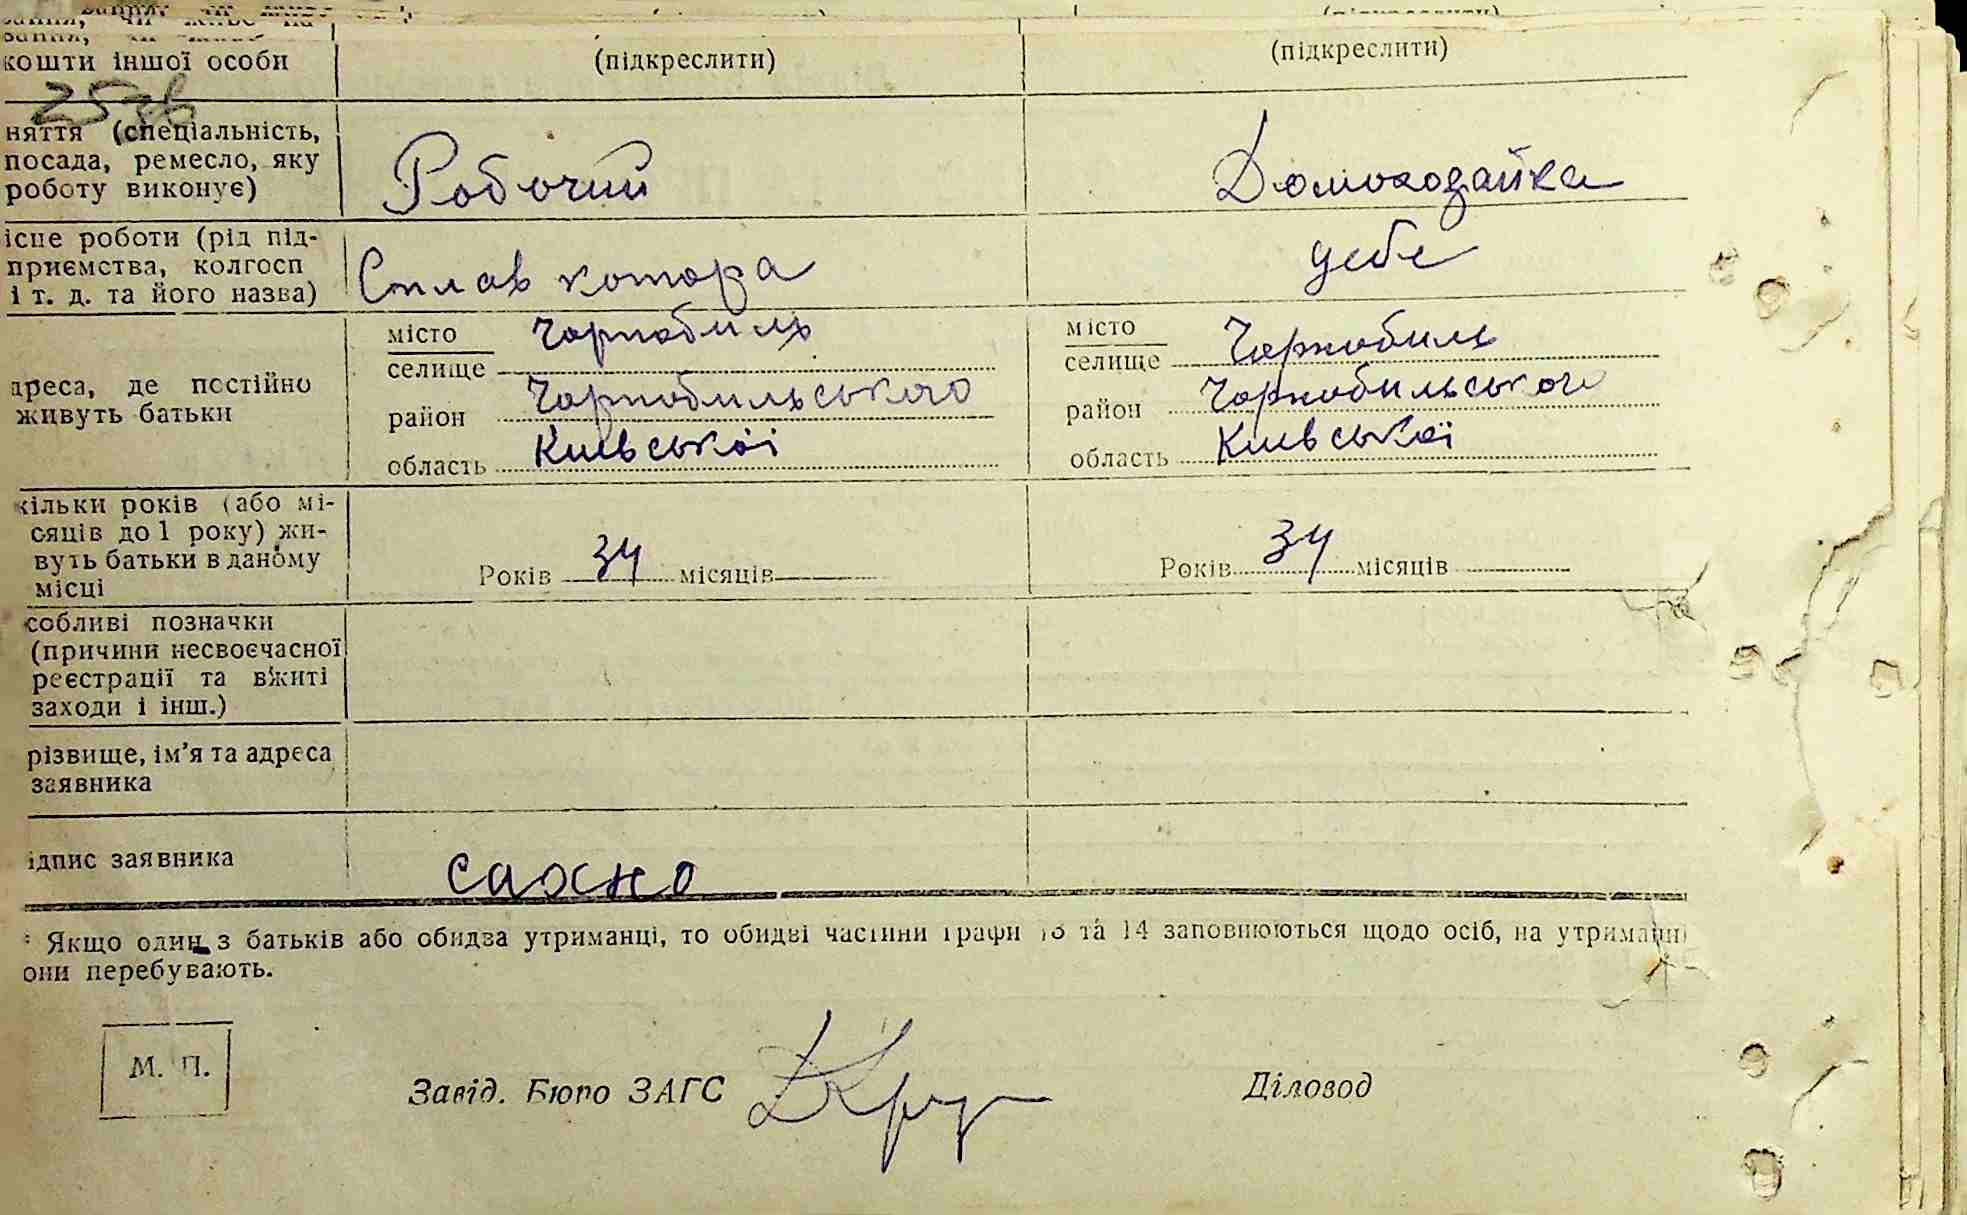 кошти іншої особи
(підкреслити)
(підкреслити)
няття (спеціальність,
посада, ремесло, яку
роботу виконує)
Робочий
Домохозайка
ісце роботи (рід під-
приємства, колгосп
і т. д. та його назва)
Сплав контора
дебе
дреса, де постійно
живуть батьки
місто Чорнобиль
селище
район Чорнобильського
область Київської
місто Чорнобиль
селище
район Чорнобильського
область Київської
кільки років (або мі-
сяців до 1 року) жи-
вуть батьки в даному
місці
Років 34 місяців
Років 34 місяців
собливі позначки
(причини несвоєчасної
реєстрації та вжиті
заходи і інш.)
різвище, ім'я та адреса
заявника
ідпис заявника
сахно
* Якщо один з батьків або обидва утриманці, то обидві частини графи 13 та 14 заповнюються щодо осіб, на утриманні
они перебувають.
М. П.
Завід. Бюро ЗАГС
Діловод